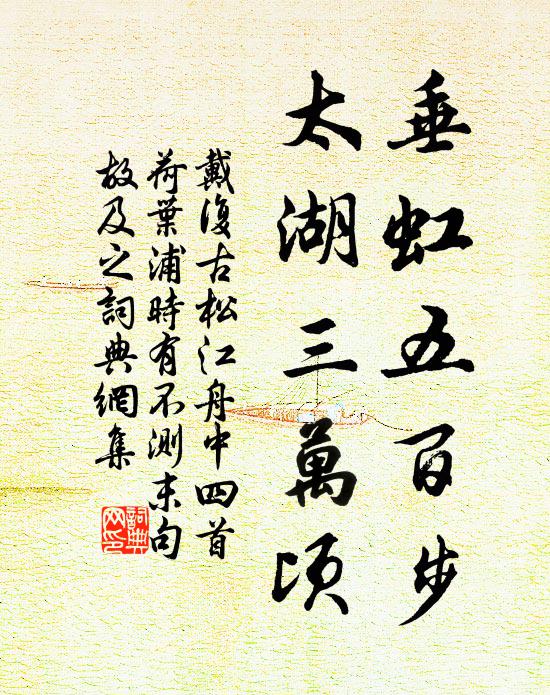 垂虹五百步
太湖三萬頃
戴復古松江舟中四首
荷葉浦時有不測末句
故及之詞典網集
詞典網印